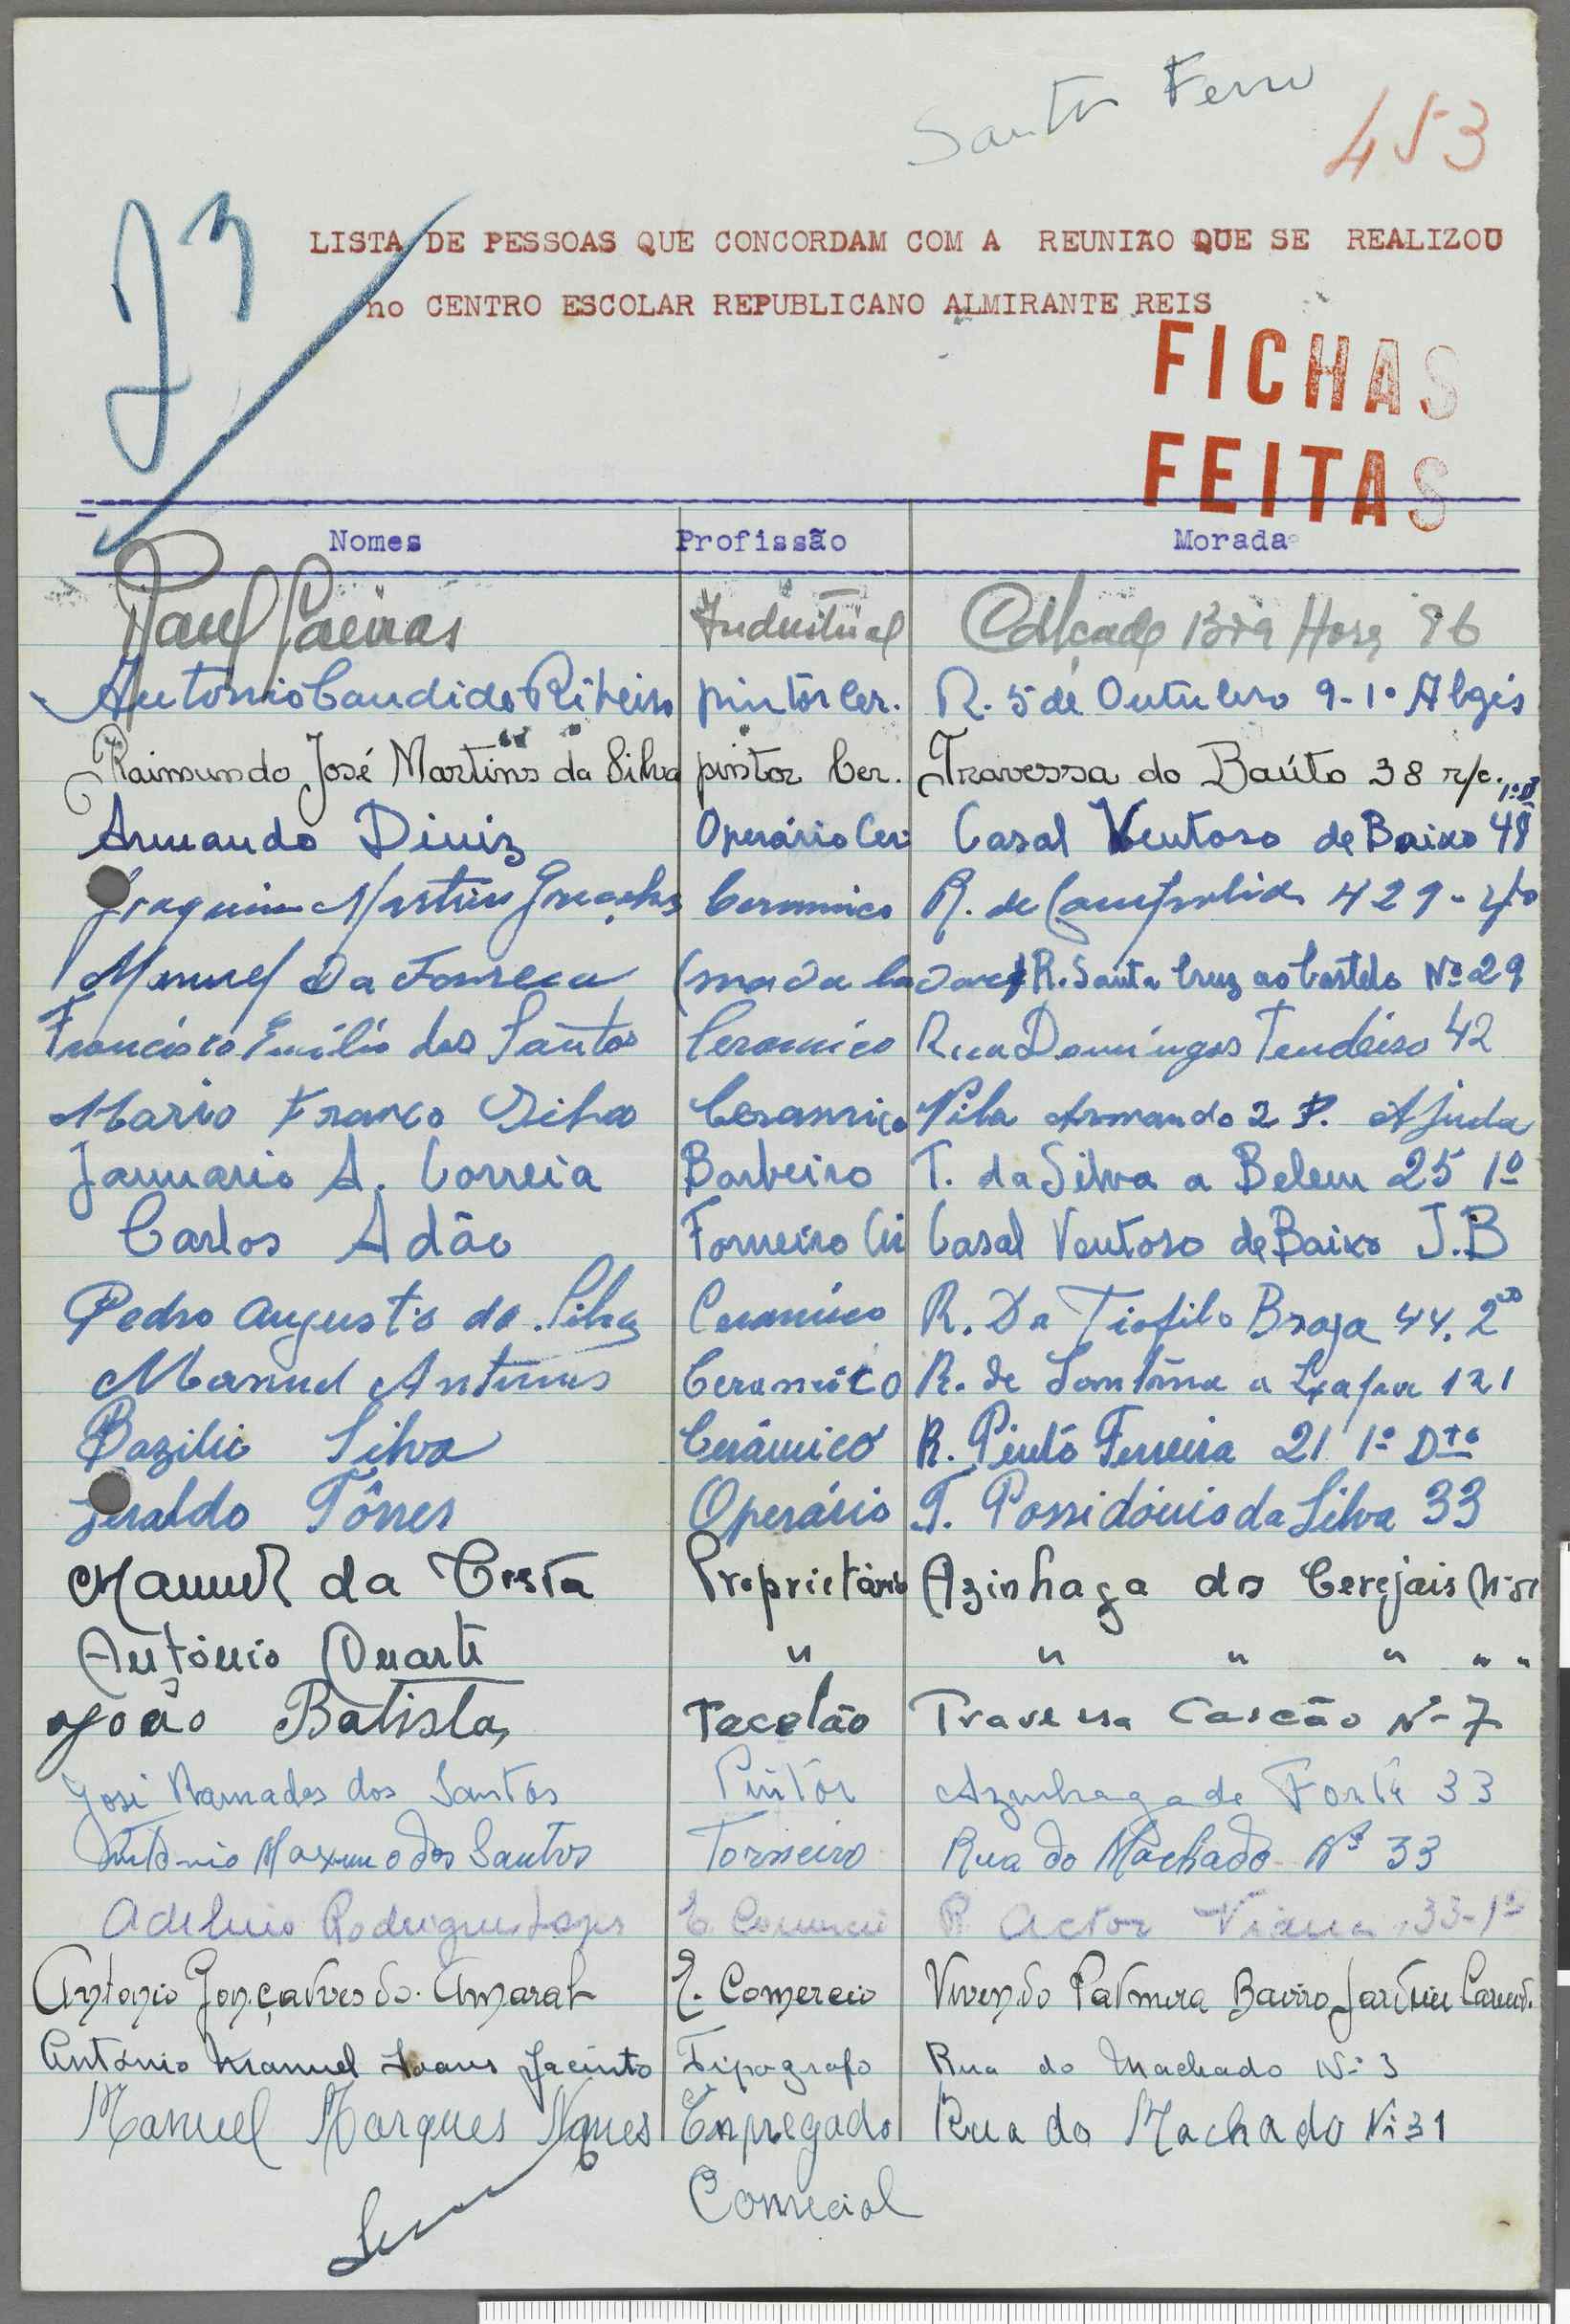 453
23
LISTA DE PESSOAS QUE CONCORDAM COM A REUNIÃO QUE SE REALIZOU
no CENTRO ESCOLAR REPUBLICANO ALMIRANTE REIS
FICHAS
FEITAS
Nomes Profissão Morada
Industrial Calçada Boa Hora 96
Antonio Candido Ribeiro pintor Cer. R. 5 de Outubro 9-1º Algés
Raimundo José Martins da Silva pintor Cer. Travessa do Baúto 38 r/c.
Armando Diniz Operário Cer. Casal Ventoso de Baixo 48 1º D
Joaquim Martins Ceramico R. de Campolide 429
Manuel da Fonseca R. Santa Cruz ao Castelo Nº 29
Francisco Emílio dos Santos Ceramico Rua Domingos Tendeiro 42
Mario Franco Silva Ceramico Vila Armando 2 P. Ajuda
Januario A. Correia Barbeiro T. da Silva a Belem 25 1º
Carlos Adão Forneiro Casal Ventoso de Baixo J.B
Pedro Augusto da Silva Ceramico R. Da Tiofilo Braga 44. 2º
Manuel Antunes Ceramico R. de Santána a Lapa 121
Bazilio Silva Cerâmico R. Pinto Ferreira 21 1º Dto
Geraldo Tôrres Operário T. Possidónio da Silva 33
Manuel da Costa Proprietário Azinhaga dos Cerejais
António Duarte " " " " " "
João Batista Tecelão Travessa Cascão Nº 7
José Ramados dos Santos Pintor Azinhaga de Fonte 33
António Maximo dos Santos Torneiro Rua do Machado Nº 33
Adelino Rodrigues Lopes E. Comercio R. Actor Viana 33-1º
Antonio Gonçalves do Amaral E. Comercio Vivenda Palmira Bairro Jardim
António Manuel Soares Jacinto Tipografo Rua do Machado Nº 3
Manuel Marques Nunes Empregado Rua do Machado Nº 31
Comercial